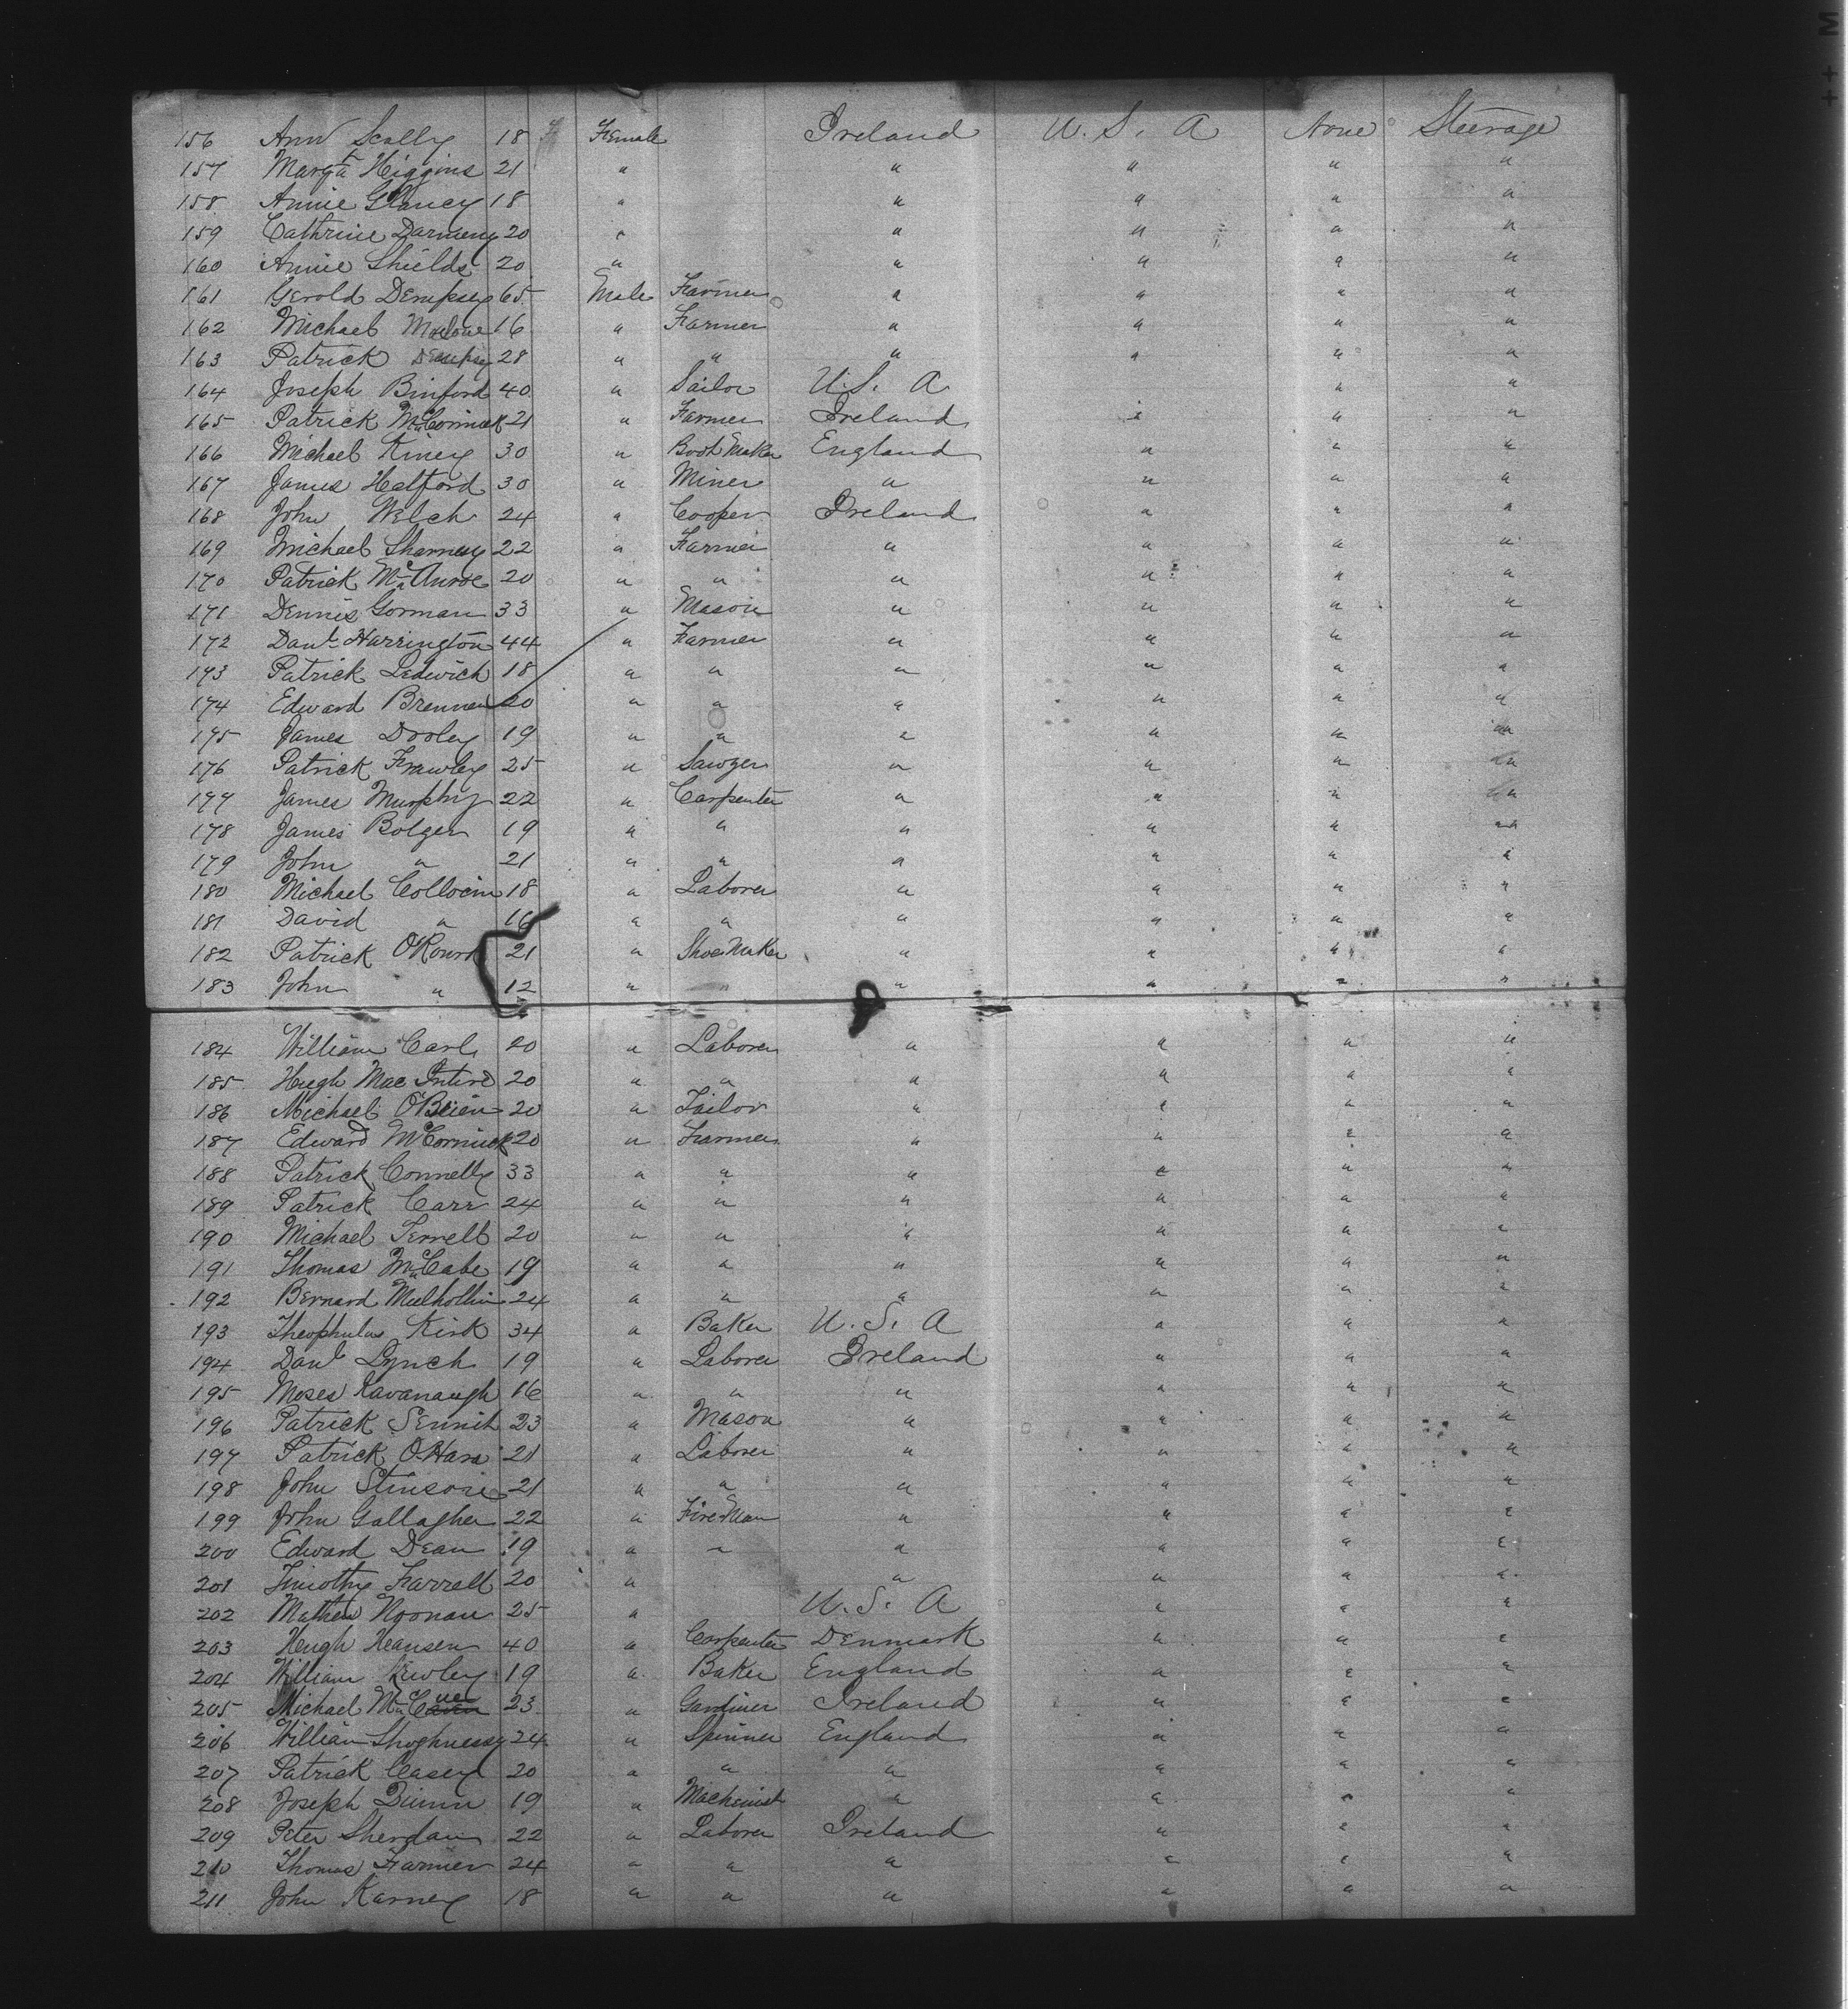 156 Ann Scally 18 Female Ireland U. S. A None Steerage
157 Margt Higgins 21 " " " " "
158 Annie Glancy 18 " " " " "
159 Cathrine Darmeny 20 " " " " "
160 Annie Shields 20 " " " " "
161 Gerold Dempsey 65 Male Farmer " " " "
162 Michael 16 " Farmer " " " "
163 Patrick Dempsey 28 " " " " " "
164 Joseph Binford 40 " Sailor U. S. A " "
165 Patrick McCormick 21 " Farmer Ireland " " "
166 Michael Kiney 30 " Boot Maker England " " "
167 James Hatford 30 " Miner " " " "
168 John Welch 24 " Cooper Ireland " " "
169 Michael Sharney 22 " Farmer " " " "
170 Patrick 20 " " " " " "
171 Dennis Gorman 33 " Mason " " " "
172 Danl Harrington 44 " Farmer " " " "
173 Patrick Ledwich 18 " " " " " "
174 Edward Brennen 20 " " " " " "
175 James Dooley 19 " " " " " "
176 Patrick Frawley 25 " Sawyer " " " "
177 James Murphy 22 " Carpenter " " " "
178 James Bolger 19 " " " " " "
179 John " 21 " " " " " "
180 Michael 18 " Laborer " " " "
181 David " 16 " " " " " "
182 Patrick O'Rourk 21 " Shoe Maker " " " "
183 John " 12 " " " " " "
184 William Carl 20 " Laborer " " " "
185 Hugh Mac Intire 20 " " " " " "
186 Michael O'Brien 20 " Tailor " " " "
187 Edward McCormick 20 " Farmer " " " "
188 Patrick Connelly 33 " " " " " "
189 Patrick Carr 24 " " " " " "
190 Michael Terrell 20 " " " " " "
191 Thomas McCabe 19 " " " " " "
192 Bernard Mulhollin 24 " " " " " "
193 Theophulus Kirk 34 " Baker U. S. A " " "
194 Danl Lynch 19 " Laborer Ireland " " "
195 Moses Kavanaugh 16 " " " " " "
196 Patrick Sennit 23 " Mason " " " "
197 Patrick O'Hara 21 " Laborer " " " "
198 John Stinson 21 " " " " " "
199 John Gallagher 22 " Fire Man " " " "
200 Edward Dean 19 " " " " " "
201 Timothy Farrell 20 " " " " "
202 Mathew Noonan 25 " U. S. A " " "
203 Hugh Heansen 40 " Carpenter Denmark " " "
204 William Kewley 19 " Baker England " " "
205 Michael 23 " Gardiner Ireland " " "
206 William Shoghnessy 24 " Spinner England " " "
207 Patrick Casey 20 " " " " " "
208 Joseph Dunn 19 " Machinist " " " "
209 Peter Sherdan 22 " Laborer Ireland " " "
210 Thomas Farmer 24 " " " " " "
211 John Karney 18 " " " " " "